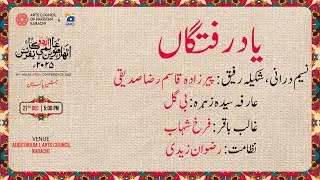 ARTS COUNCIL
OF PAKISTAN
KARACHI
GEO
عالمی اردو کانفرنس
۲۰۲۵ء
جشنِ پاکستان
27TH DEC | 5:00 PM
VENUE
AUDITORIUM I, ARTS COUNCIL
KARACHI
یادِ رفتگاں
نسیم درانی، شکیلہ رفیق: پیرزادہ قاسم رضا صدیقی
عارفہ سیدہ زہرہ: بی گل
غالب باقر: فرخ شہاب
نظامت: رضوان زیدی